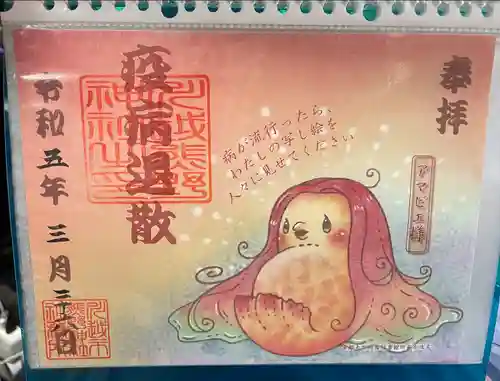 奉拝
アマビエ様
病が流行ったら、
わたしの写し絵を
人々に見せてください
疫病退散
令和五年三月二十六日